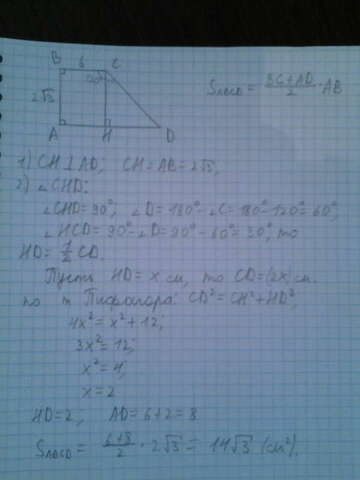 B 6 C
120°
2√3
A H D
S_ABCD = (BC+AD)/2 · AB
1) CH⊥AD; CH=AB=2√3;
2) ∠CHD:
∠CHD=90°; ∠D=180°-∠C=180°-120°=60°,
∠HCD=90°-∠D=90°-60°=30°, то
HD=1/2 CD.
Пусть HD=x см, то CD=(2x) см.
по т Пифагора: CD²=CH²+HD²,
4x²=x²+12;
3x²=12;
x²=4;
x=2
HD=2; AD=6+2=8
S_ABCD = (6+8)/2 · 2√3 = 14√3 (см²).